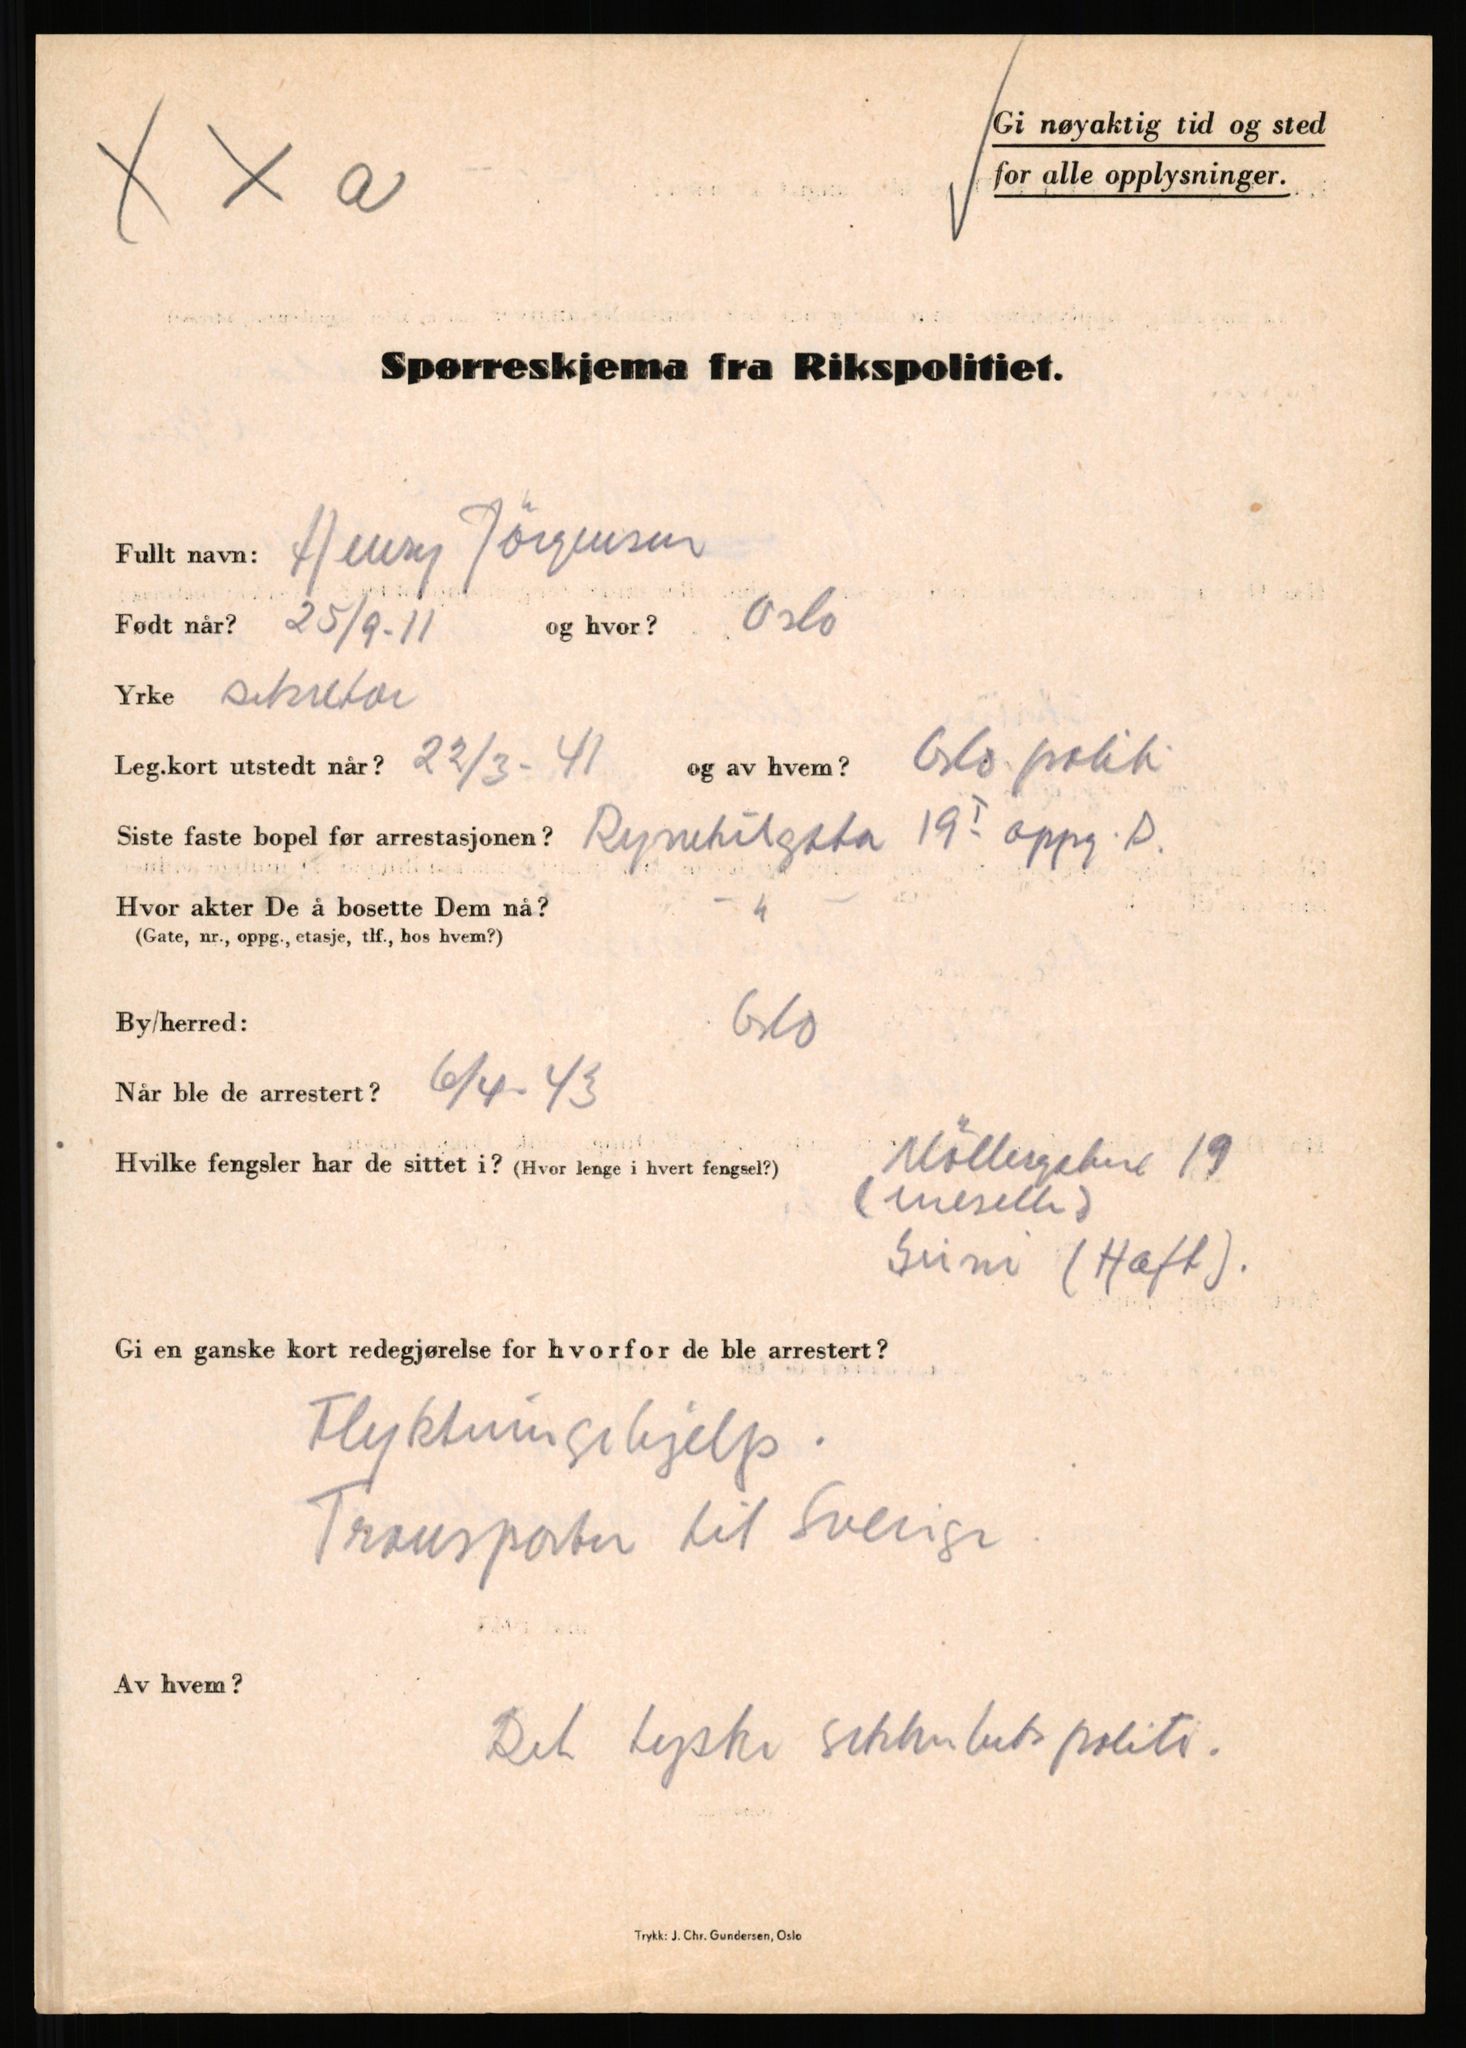 X X a
Gi nøyaktig tid og sted
for alle opplysninger.
Spørreskjema fra Rikspolitiet.
Fullt navn: Henry Jörgensen
Født når? 25/9-11 og hvor? Oslo
Yrke sekretær
Leg.kort utstedt når? 22/3-41 og av hvem? Oslo politi
Siste faste bopel før arrestasjonen? 19 I oppg. D.
Hvor akter De å bosette Dem nå? - " -
(Gate, nr., oppg., etasje, tlf., hos hvem?)
By/herred: Oslo
Når ble de arrestert? 6/4-43
Hvilke fengsler har de sittet i? (Hvor lenge i hvert fengsel?) Möllergaten 19
Grini (Haft).
Gi en ganske kort redegjørelse for hvorfor de ble arrestert?
Flyktningehjelp.
Transporter til Sverige.
Av hvem?
Det tyske sikkerhetspoliti.
Trykk: J. Chr. Gundersen, Oslo